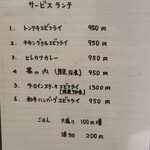 サービス ランチ
1. トンテキエビフライ 950円
2. チキングリルエビフライ 950円
3. ヒレカツカレー 950円
4. 幕の内 (限定10食) 950円
5. サーロインステーキエビフライ 1300円
6. 和牛ハンバーグエビフライ 950円
ごはん 大盛り 100円増
追加 200円